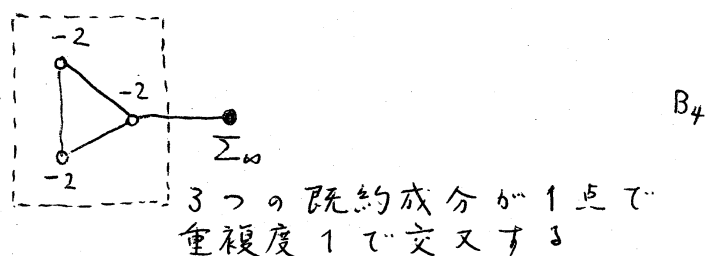 -2
-2
B₄
Σ∞
-2
3つの既約成分が1点で
重複度1で交叉する